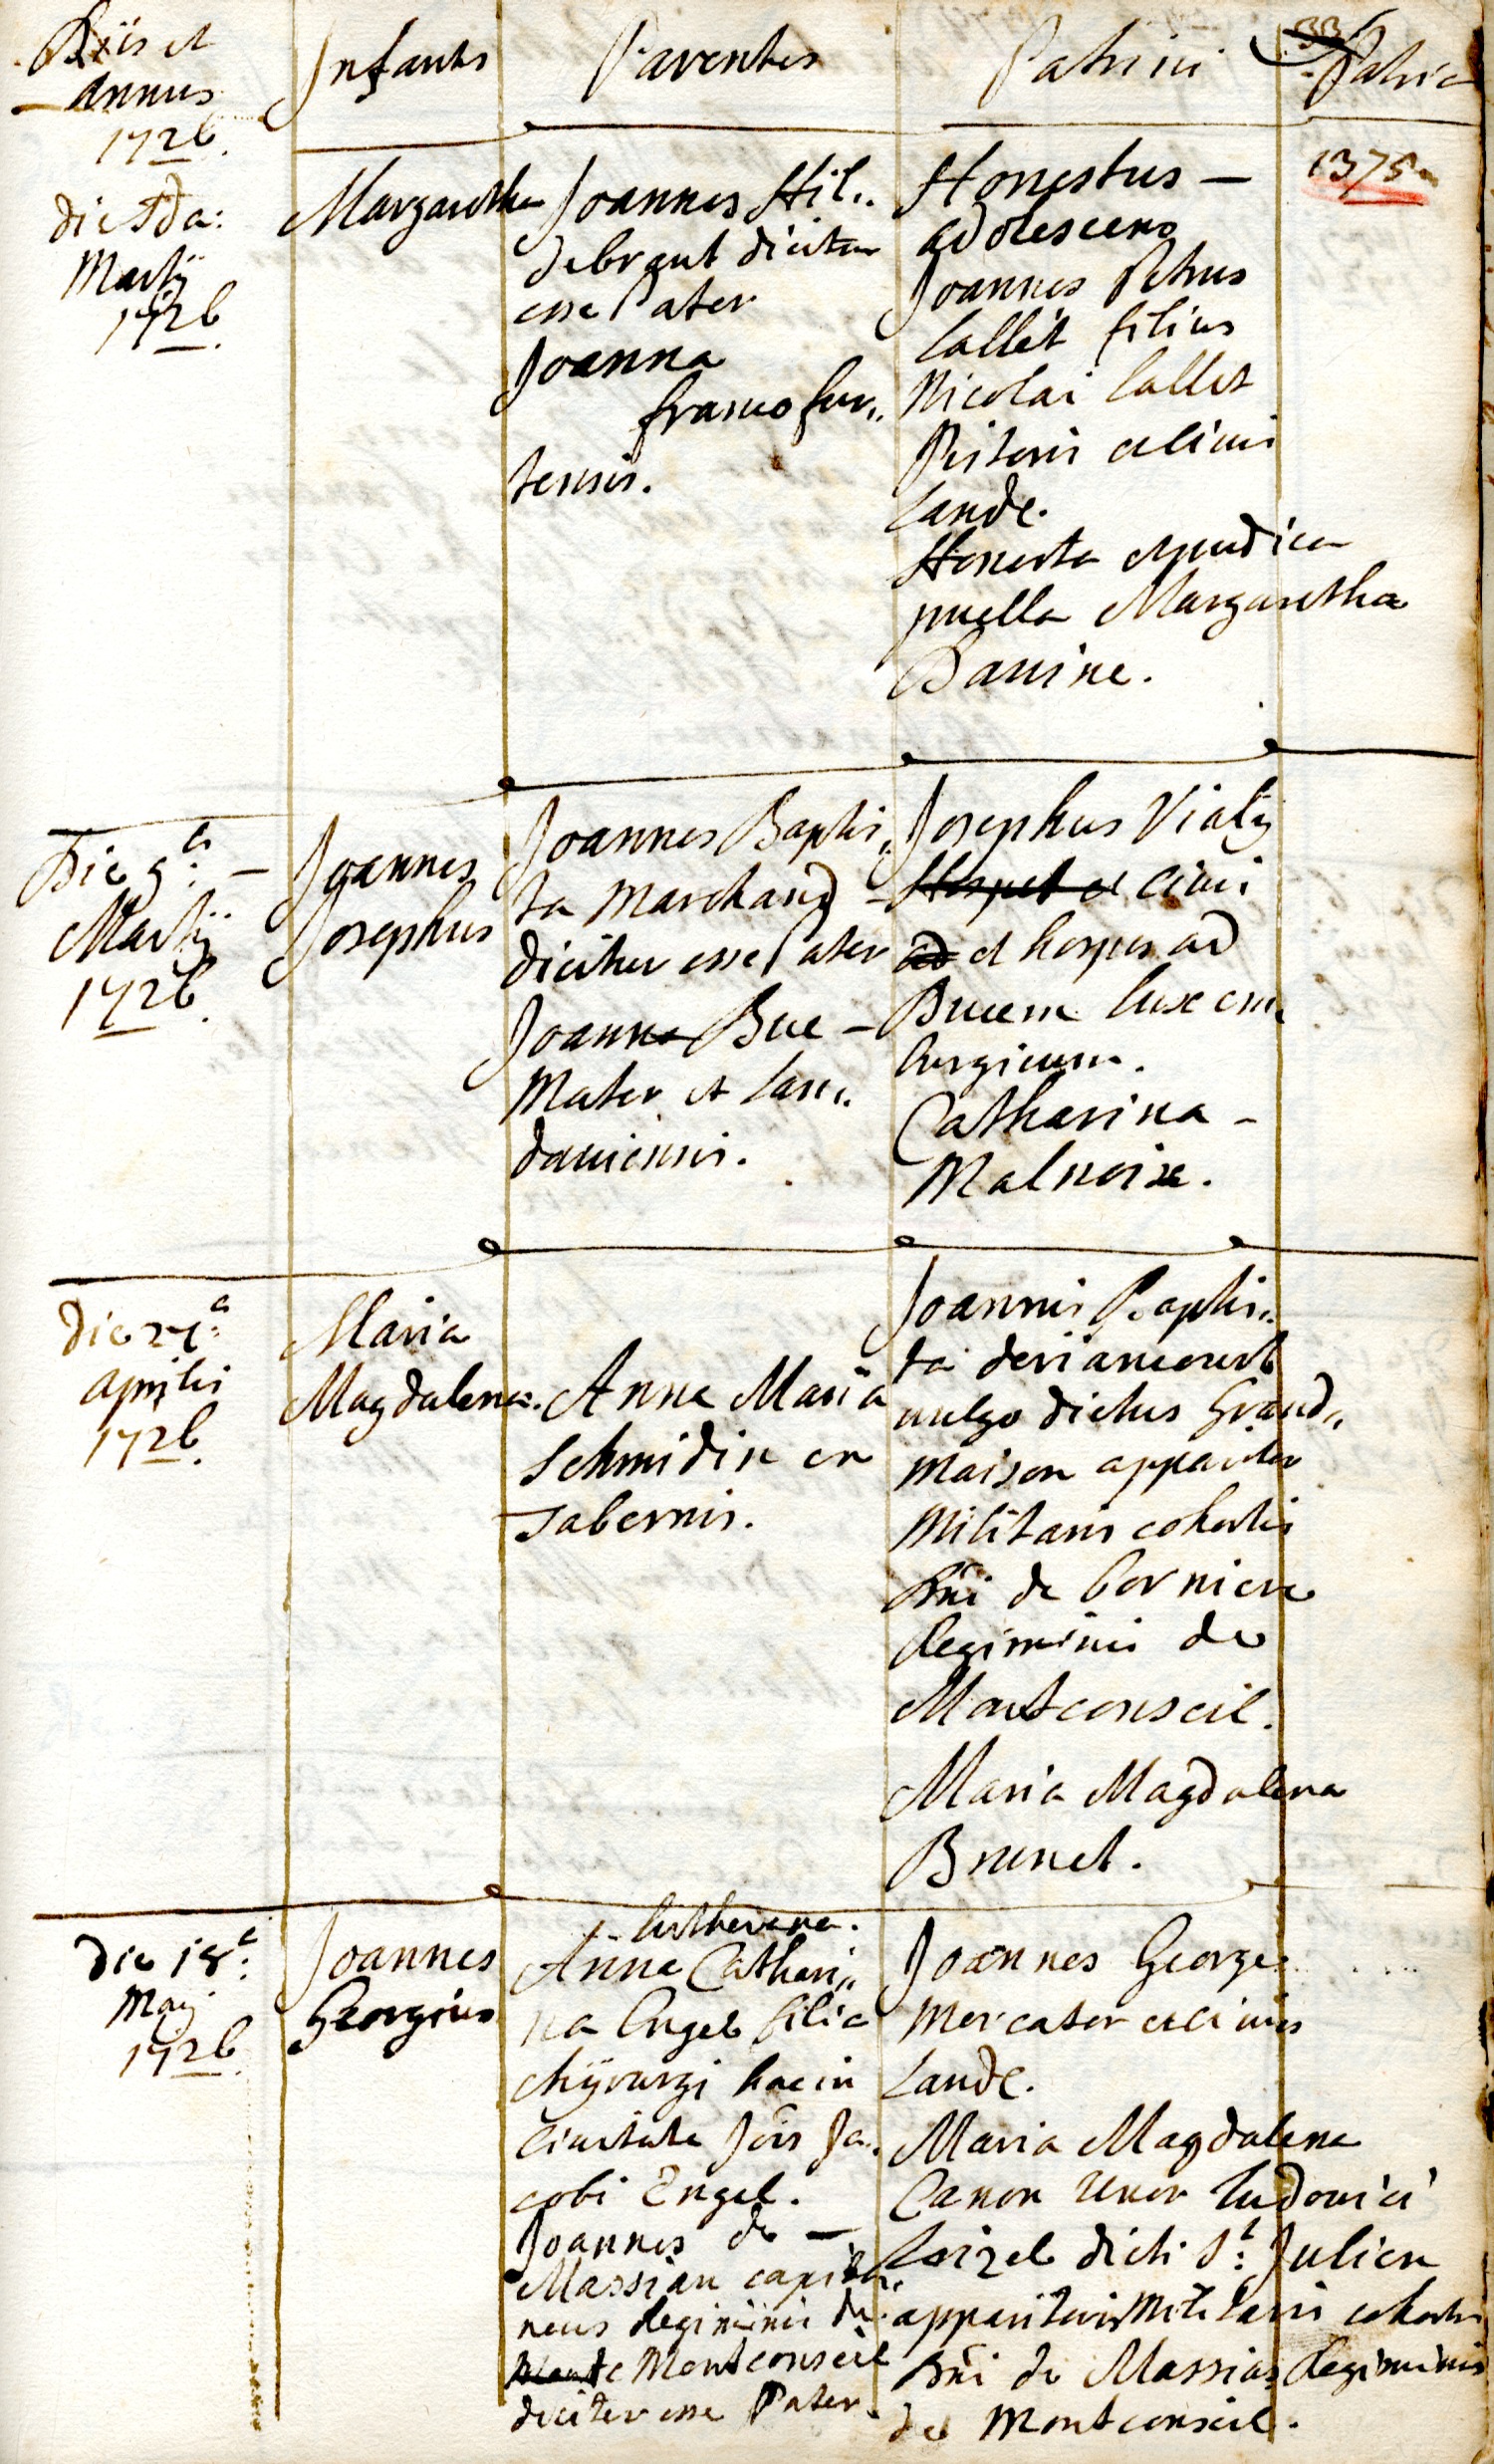 Diis et
annus
1726.
Infants
Parentes
Patrini
33
Patri
die 5da:
Martij
1726.
Margaretha
Joannes Hil„
debrant dicitur
esse Pater
Joanna
francofur„
tensis.
Honestus —
adolescens
Joannes Petrus
Collet filius
Nicolai Collet
Pistoris civis
Landv.
Honesta et pudica
puella Margaretha
Bauine.
1375
Die 9a: —
Martij
1726.
Joannes
Josephus
Joannes Baptis„
ta Marchand —
dicitur esse Pater
Joanna Bue —
Mater et Lan„
daviensis.
Josephus Vialy
Hospet et civis
ad et hospes ad
Ducem luxem„
burgicum.
Catharina -
Malnoixe.
die 27a:
aprilis
1726.
Maria
Magdalena.
Anna Maria
Schmidin ex
Tabernis.
Joannis Baptis„
ta deriancourt
vulgo dictus Grand„
maison apparitor
Militaris cohortis
Dni de Corniere
Regiminis de
Montconseil.
Maria Magdalena
Brunet.
die 18a:
Maij
1726.
Joannes
Georgius
lutherana.
Anna Cathari„
na Engel filia
chyrurgi hac in
Civitate Jois Ja„
cobi Engel.
Joannes de —
Massian capita„
neus Regiminis de
Montc Montconseil
dicitur esse Pater.
Joannes Georges
Mercator et civis
Landv.
Maria Magdalena
Canon uxor Ludovici
Loizel dicti St: Julien
apparitoris Militaris cohortis
Dni de Massias Regiminis
de Montconseil.